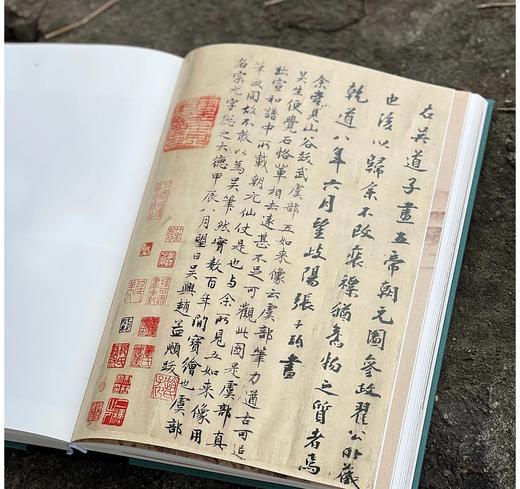 右吳道子畫五帝朝元圖參政翟公藏
也後以歸余不改裝褾猶舊物之質者焉
乾道八年六月望岐陽張子書
余嘗見山谷跋武虞部五如來像云虞部筆力遒古可追
吳生便覺石恪輩相去遠甚不足可觀此圖是虞部真
跡宣和譜中所載朝元仙仗是也與余所見五如來像用
筆政同故不敢以為吳筆然實數百年間寶繪也虞部
名宗元字總之大德甲辰八月望日吳興趙孟頫跋